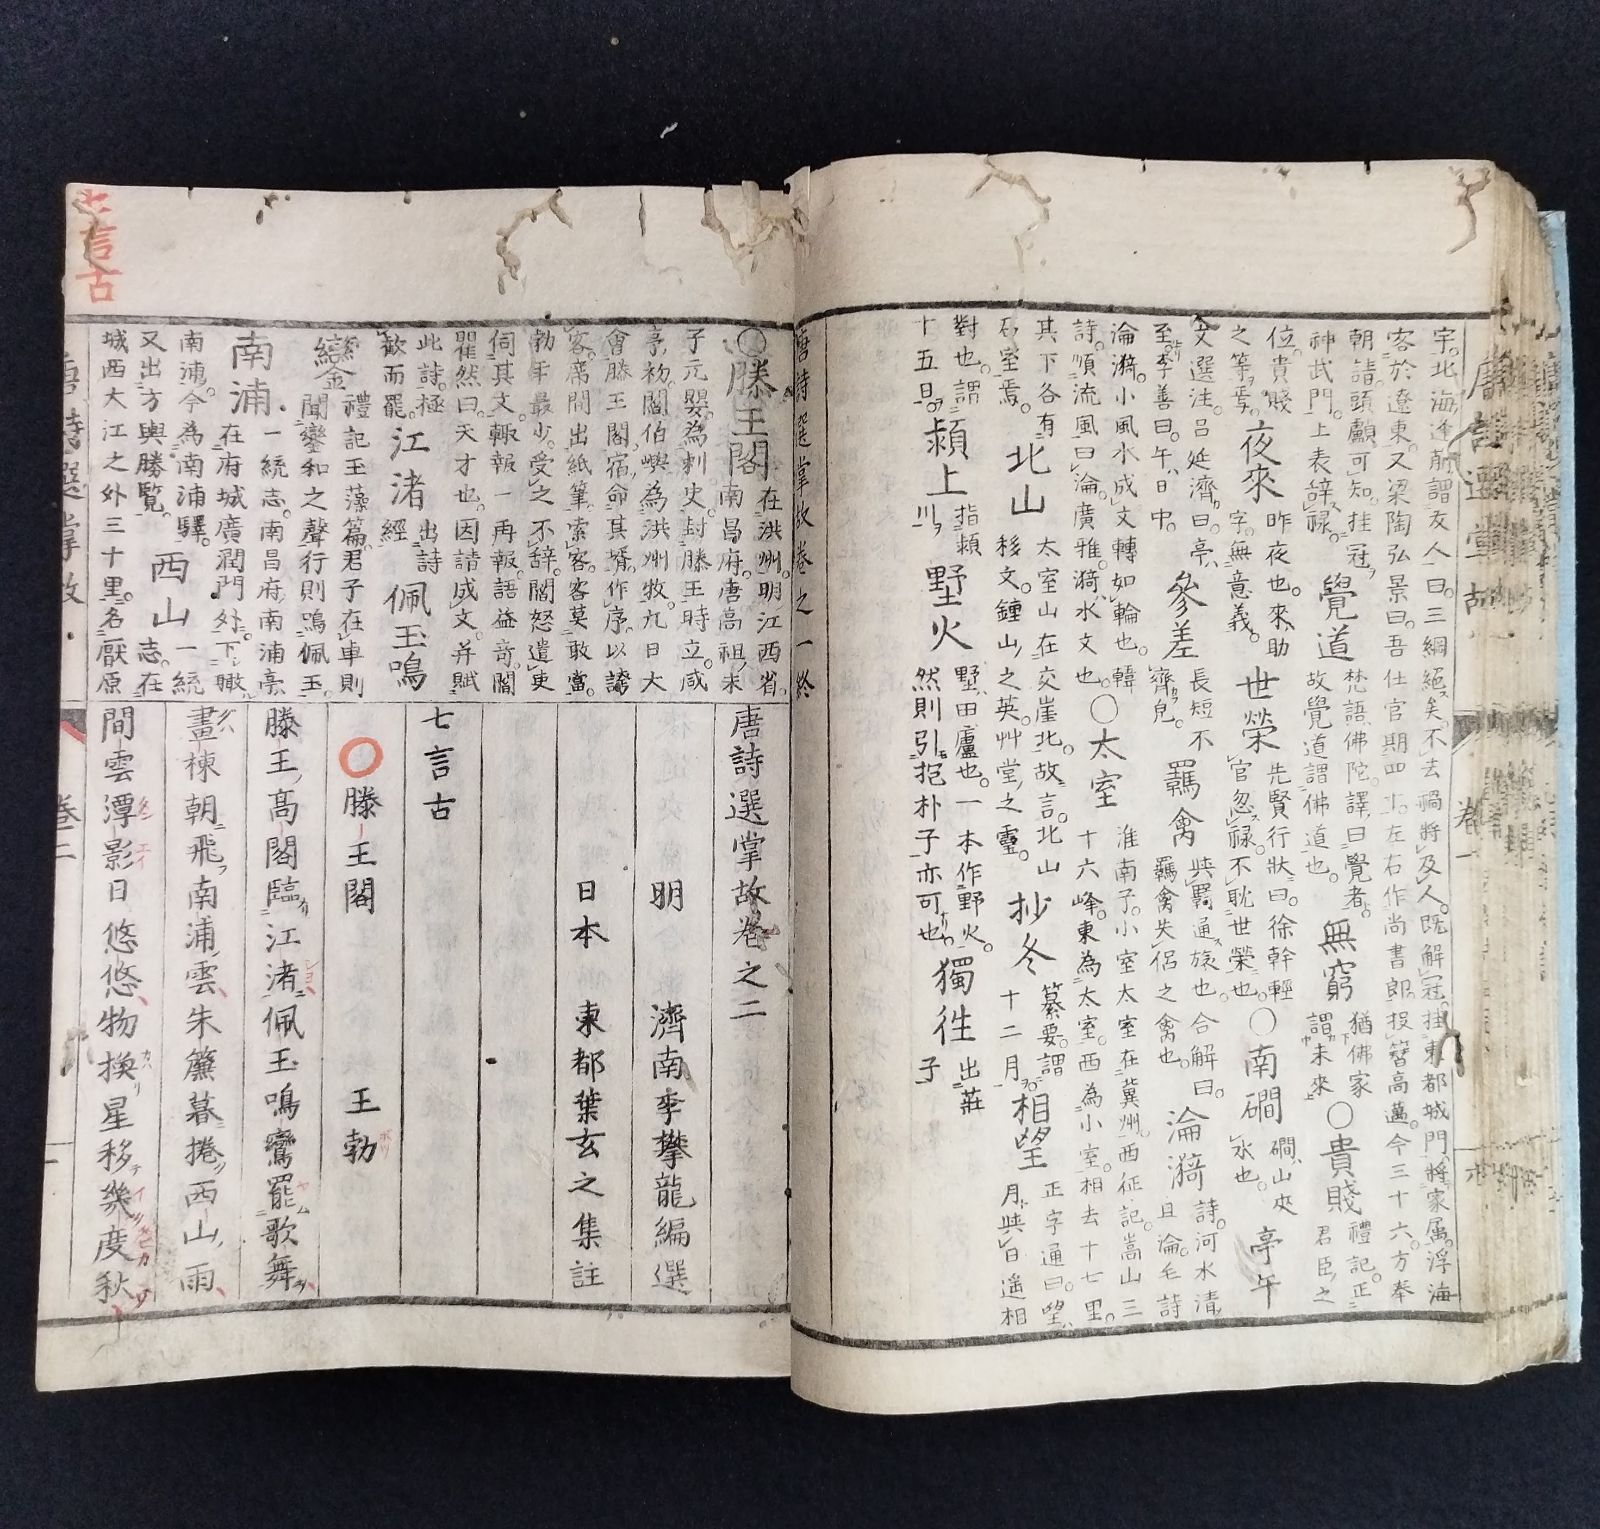 宇。北海逢萠謂友人曰。三綱絕矣。不去禍將及人。既解冠。掛東都城門。將家属。浮海
客於遼東。又梁陶弘景曰。吾仕官期四十。左右作尚書郎。投簪高邁。今三十六。方奉
朝請。頭顱可知。挂冠
神武門。上表辞禄。
覺道
梵語佛陀。譯曰覺者。
故覺道謂佛道也。
無窮
猶佛家
謂未來
〇貴賤
禮記。正
君臣之
位。貴賤
之等焉。
夜來
昨夜也。來助
字。無意義。
世榮
先賢行狀曰。徐幹輕
官忽禄。不耽世榮也。
〇南磵
磵、山夾
水也。
亭午
文選注。呂延濟曰。亭、
至。李善曰。午、日中。
參差
長短不
齊皃。
羈禽
與羇通。旅也。合解曰。
羈禽失侶之禽也。
淪漪
詩。河水清
且淪。毛詩
淪漪。小風水成文轉如輪也。韓
詩。順流風曰淪。廣雅。漪、水文也。
〇太室
淮南子。小室太室在冀州。西征記。嵩山三
十六峰。東為太室。西為小室。相去十七里。
其下各有
石室焉。
北山
太室山在交崖北。故言北山
移文。鍾山之英。艸堂之靈。
抄冬
纂要。謂
十二月
相望
正字通曰。望、
月與日遥相
對也。謂
十五日。
潁上
指潁
川。
墅火
墅、田廬也。一本作野火。
然則引抱朴子亦可也
獨往
出莊
子
唐詩選掌故卷之一終
卷一
〇滕王閣
在洪州。明江西省。
南昌府。唐高祖末
子元嬰。為刺史。封滕王時立。咸
亭初。閻伯嶼為洪州牧。九日大
會滕王閣。宿命其壻作序。以誇
客。席間出紙筆。索客。客莫敢當。
勃年最少。受之不辞。閻怒遣吏
伺其文。輙報。一再報。語益奇。閻
瞿然曰。天才也。因請成文。并賦
此詩。極
歡而罷。
江渚
出詩
經
佩玉鳴
鑾
禮記玉藻篇。君子在車則
聞鑾和之聲。行則鳴佩玉。
南浦
一統志。南昌府。南浦亭
在府城廣潤門外。下瞰
南浦。今為南浦驛。
又出方輿勝覧。
西山
一統
志。在
城西大江之外三十里。名厭原
唐詩選掌故卷之二
明　濟南李攀龍編選
日本　東都葉玄之集註
七言古
〇滕王閣　王勃
滕王高閣臨江渚佩玉鳴鸞罷歌舞
畫棟朝飛南浦雲朱簾暮捲西山雨
間雲潭影日悠悠物換星移幾度秋
七言古
唐詩選掌故
卷二